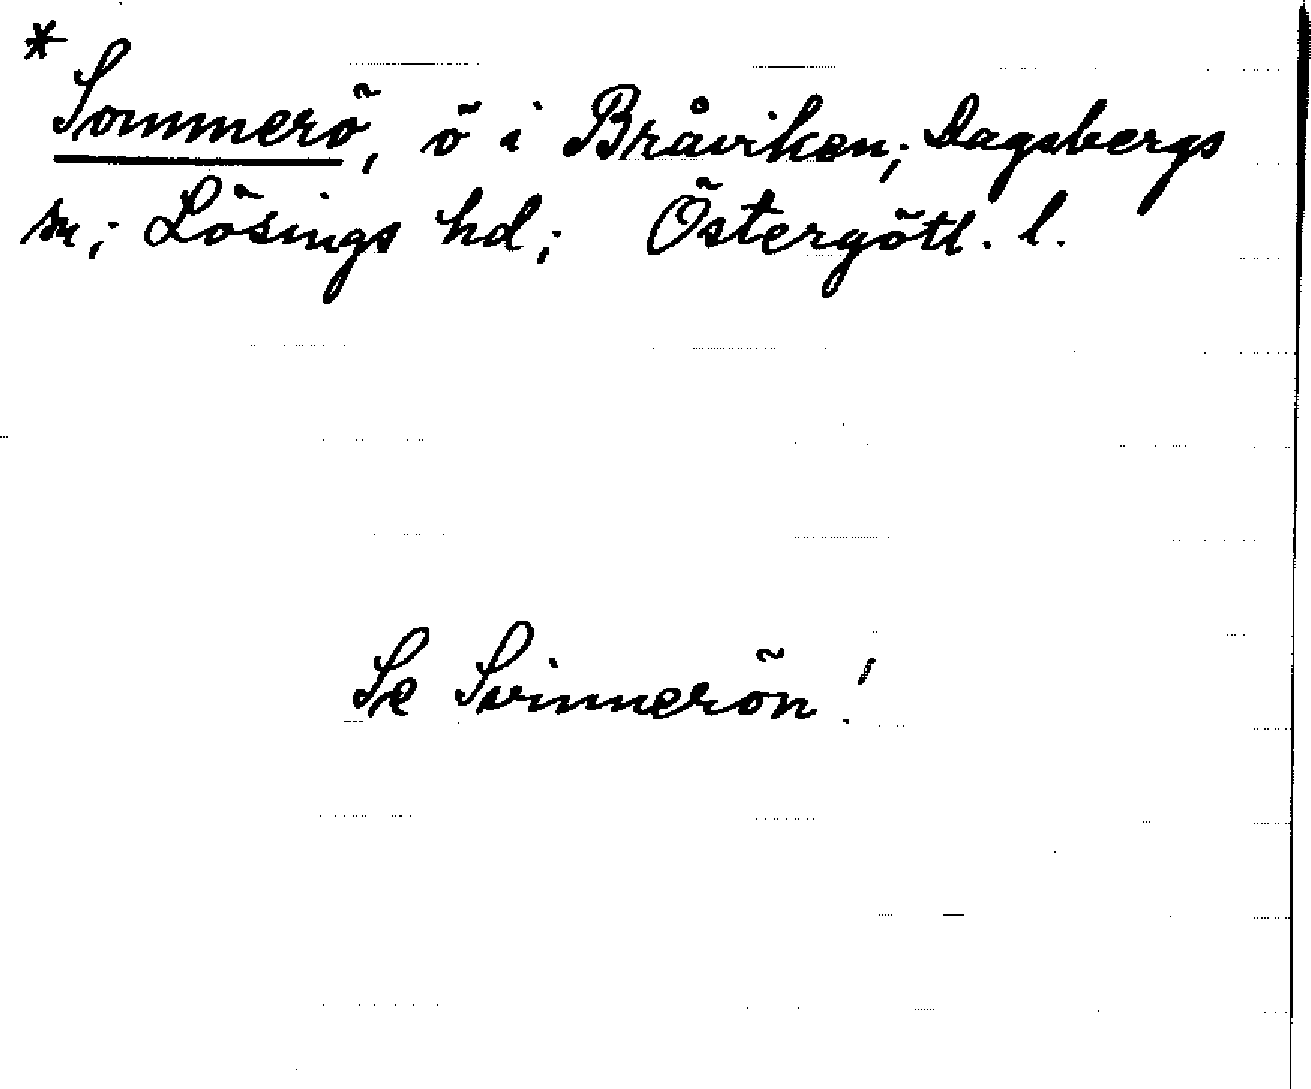 * Sommerö, ö i Bråviken; Dagsbergs
sn; Lösings hd; Östergötl. l.
Se Svinnerön!